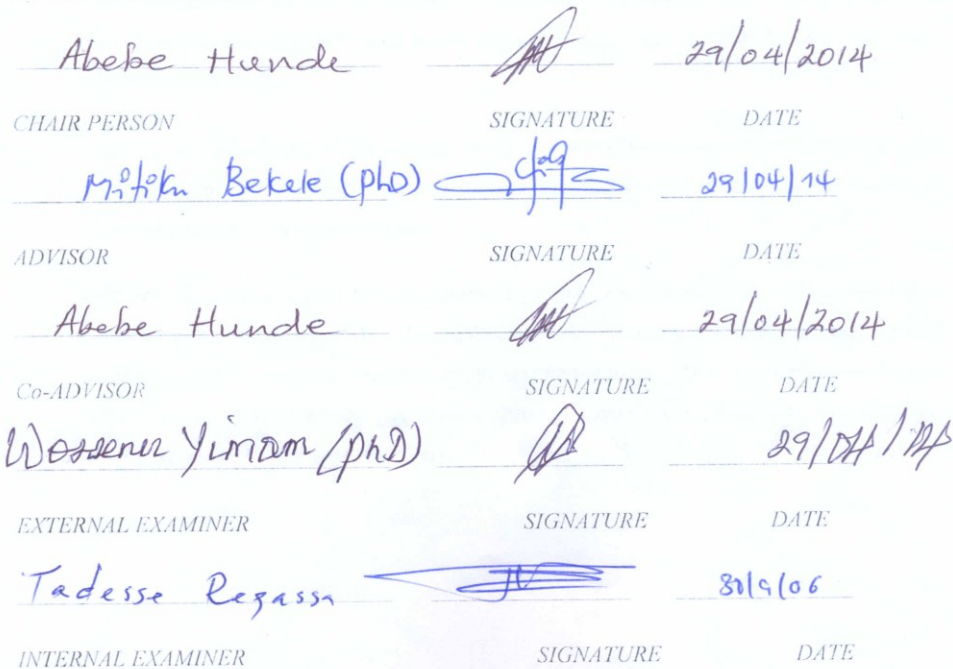 Abebe Hunde 29/04/2014
CHAIR PERSON SIGNATURE DATE
Mitiku Bekele (PhD) 29/04/14
ADVISOR SIGNATURE DATE
Abebe Hunde 29/04/2014
Co-ADVISOR SIGNATURE DATE
Yimam (PhD) 29/04/14
EXTERNAL EXAMINER SIGNATURE DATE
Tadesse Regassa 30/9/06
INTERNAL EXAMINER SIGNATURE DATE